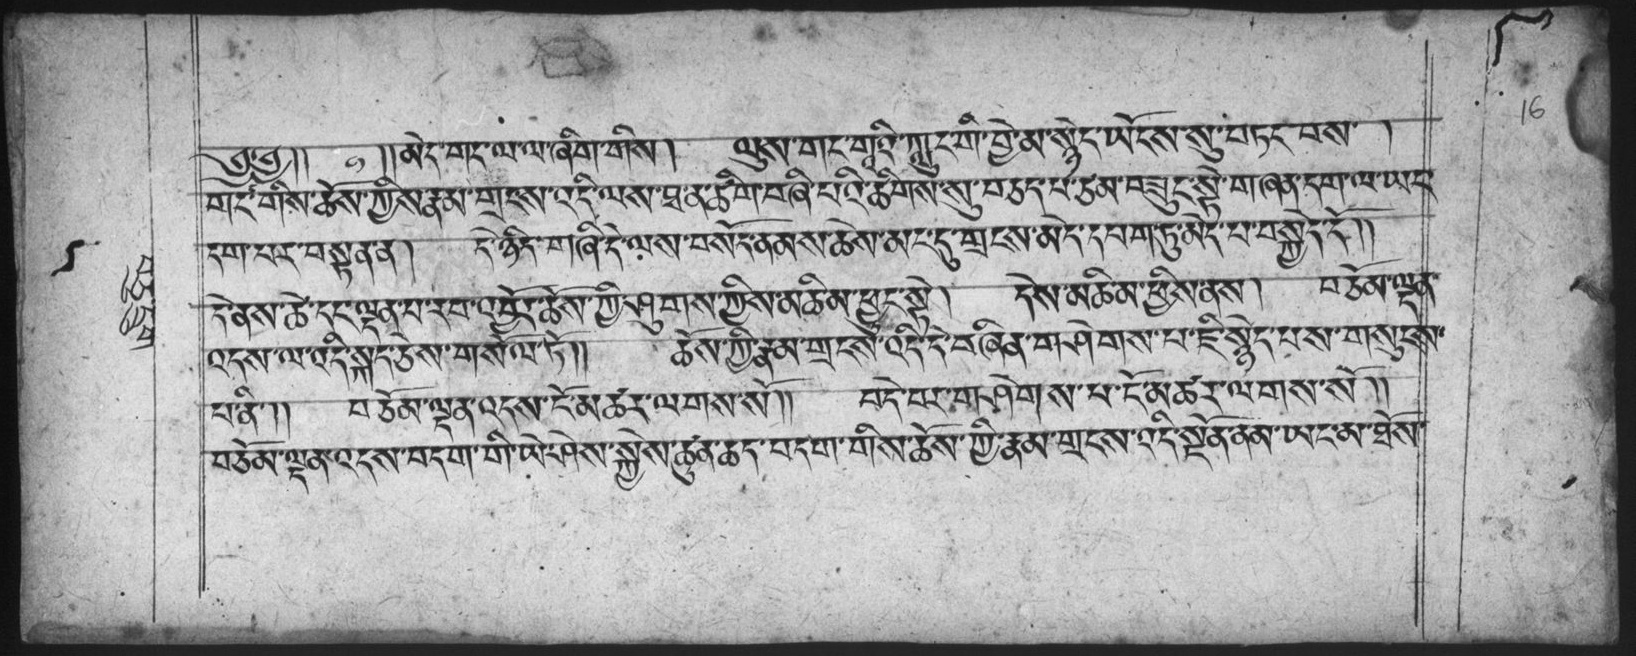 ༄༅།། ༡ །།མེད་གང་ལ་ལ་ཞིག་གིས། ལུས་གང་གཱའི་ཀླུང་གི་བྱེ་མ་སྙེད་ཡོངས་སུ་བཏང་བས།
གང་གིས་ཆོས་ཀྱི་རྣམ་གྲངས་འདི་ལས་ཐ་ན་ཚིག་བཞི་པའི་ཚིགས་སུ་བཅད་པ་ཙམ་བཟུང་སྟེ་གཞན་དག་ལ་ཡང་
དག་པར་བསྟན་ན། དེ་ཉིད་གཞི་དེ་ལས་བསོད་ནམས་ཆེས་མང་དུ་གྲངས་མེད་དཔག་ཏུ་མེད་པ་བསྐྱེད་དོ།།
དེ་ནས་ཚེ་དང་ལྡན་པ་རབ་འབྱོར་ཆོས་ཀྱི་ཤུགས་ཀྱིས་མཆི་མ་ཕྱུང་སྟེ། དེས་མཆི་མ་ཕྱིས་ནས། བཅོམ་ལྡན་
འདས་ལ་འདི་སྐད་ཅེས་གསོལ་ཏོ།། ཆོས་ཀྱི་རྣམ་གྲངས་འདི་དེ་བཞིན་གཤེགས་པ་ཇི་སྙེད་པས་གསུངས་
པ་ནི།། བཅོམ་ལྡན་འདས་ངོ་མཚར་ལགས་སོ།། བདེ་བར་གཤེགས་པ་ངོ་མཚར་ལགས་སོ།།
བཅོམ་ལྡན་འདས་བདག་གི་ཡེ་ཤེས་སྐྱེས་ཚུན་ཆད་བདག་གིས་ཆོས་ཀྱི་རྣམ་གྲངས་འདི་སྔོན་ནམ་ཡང་མ་ཐོས་
16